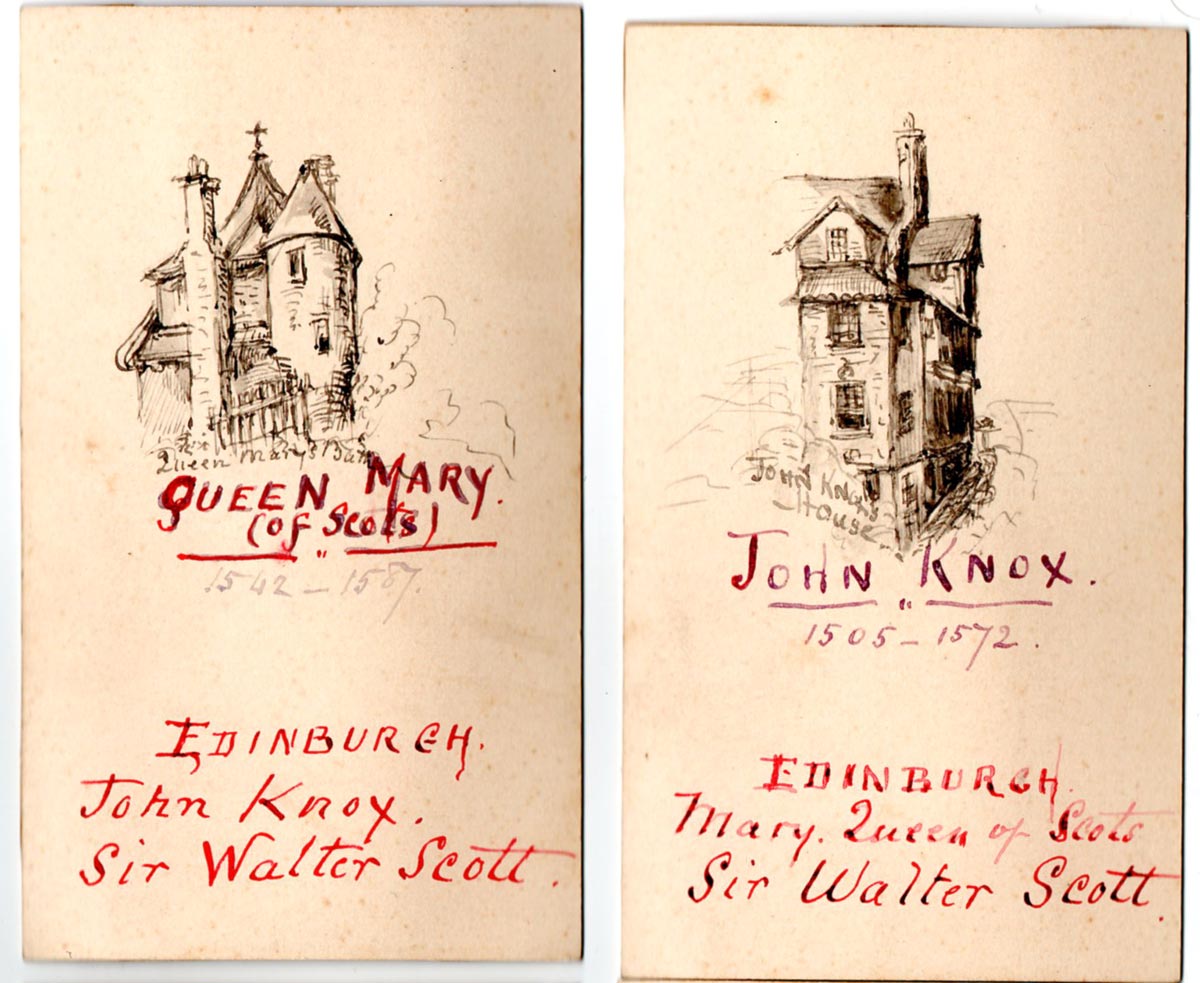 Queen Mary's Bath
QUEEN MARY.
(OF Scots)
1542 – 1587.
EDINBURGH.
John Knox.
Sir Walter Scott.
JOHN KNOX'S
House
JOHN KNOX.
1505 – 1572.
EDINBURGH.
Mary. Queen of Scots
Sir Walter Scott.